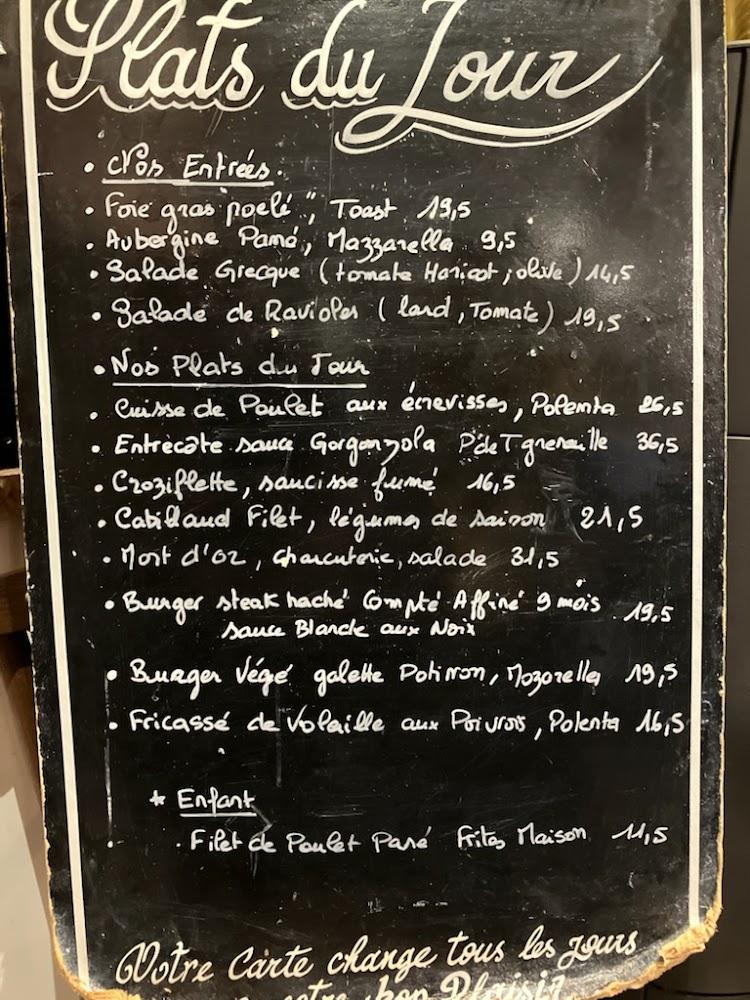 Plats du Jour
• Nos Entrées.
• Foie gras poelé ,, Toast 19,5
• Aubergine Pané, Mazzarella 9,5
• Salade Grecque (tomate Haricot ; olive) 14,5
• Salade de Ravioles (lard, Tomate) 19,5
• Nos Plats du Jour
• Cuisse de Poulet aux écrevisses, Polenta 26,5
• Entrecôte sauce Gorgonzola P'de T grenaille 36,5
• Croziflette, saucisse fumé 16,5
• Cabillaud Filet, légumes de saison 21,5
• Mont d'Or, Charcuterie, salade 31,5
• Burger steak haché Compté Affiné 9 mois 19,5
sauce Blanche aux Noix
• Burger Végé galette Potimon, Mozorella 19,5
• Fricassé de Volaille aux Poivrons, Polenta 16,5
* Enfant
• Filet de Poulet Pané Frites Maison 11,5
Notre Carte change tous les jours
notre bon Plaisir